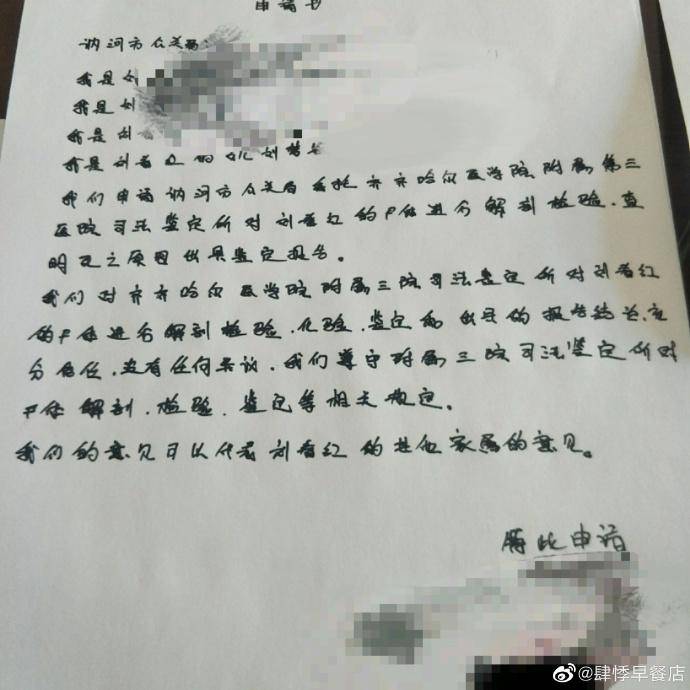 申请书
讷河市公安局:
我是刘
我是刘
我是刘春
我是刘春立的女儿刘梦
我们申请讷河市公安局委托齐齐哈尔医学院附属第三
医院司法鉴定所对刘春红的尸体进行解剖检验,查
明死亡原因出具鉴定报告。
我们对齐齐哈尔医学院附属三院司法鉴定所对刘春红
的尸体进行解剖检验、化验、鉴定和出具的报告结论,充
分信任,没有任何异议,我们遵守附属三院司法鉴定所对
尸体解剖、检验、鉴定等相关规定。
我们的意见可以代表刘春红的其他家属的意见。
特此申请
@肆悸早餐店